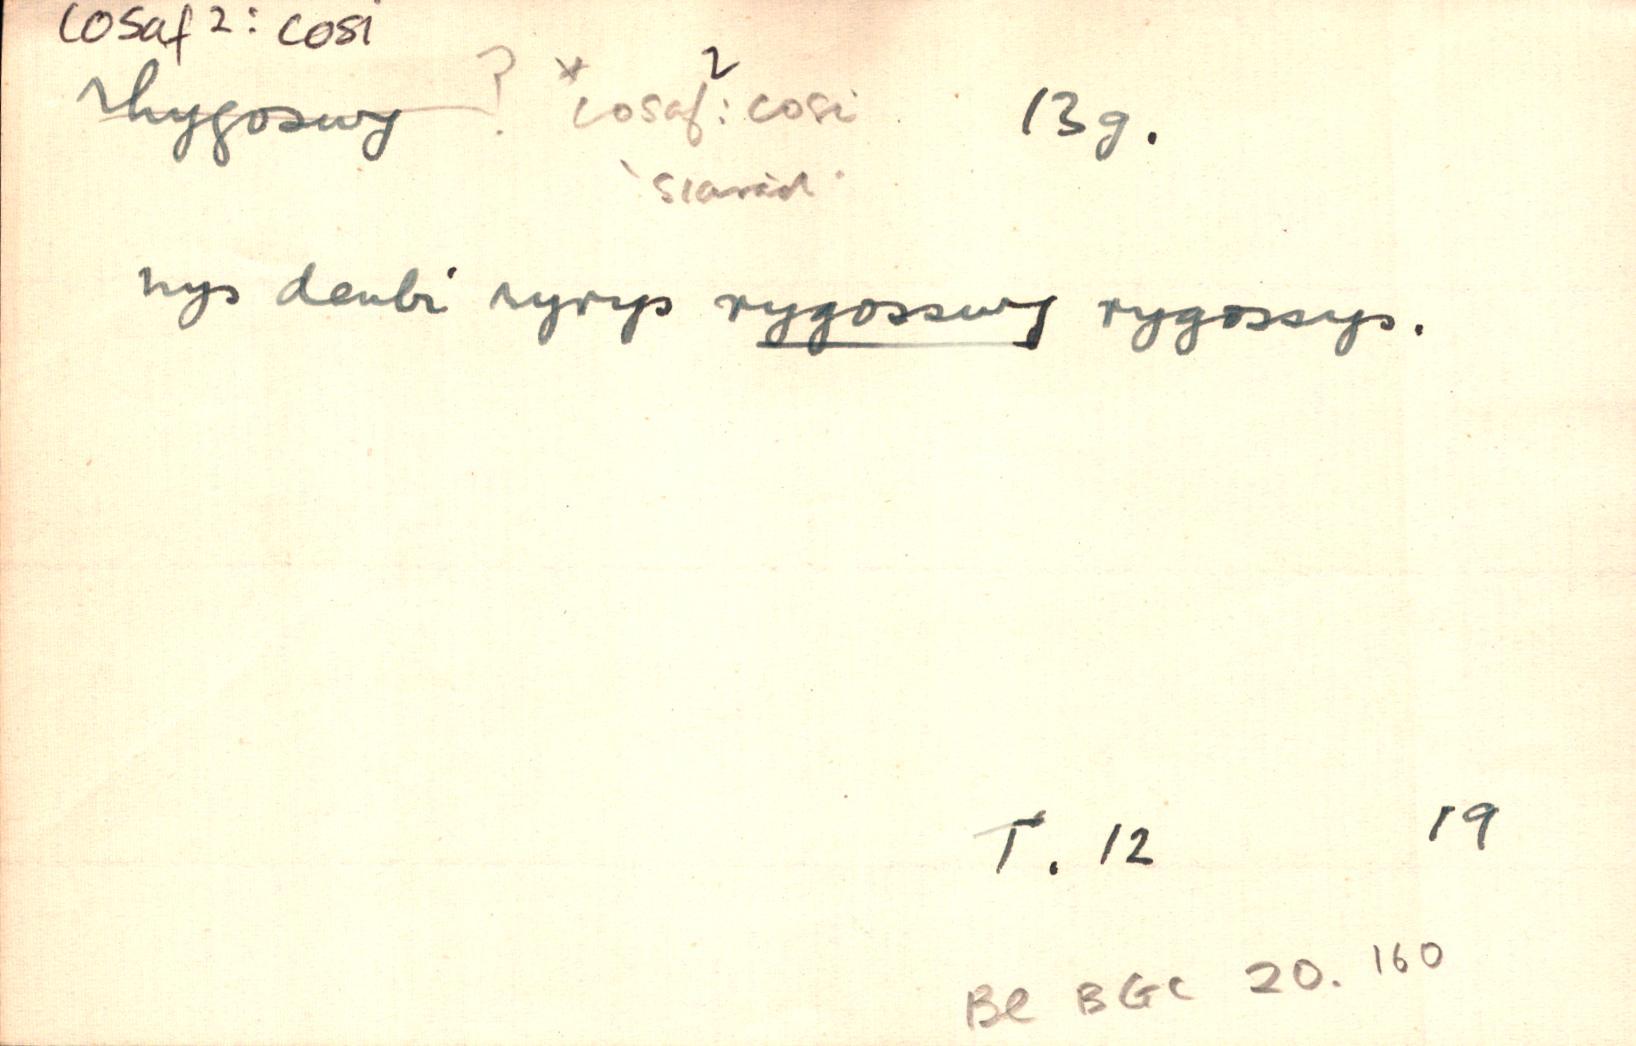 cosaf²: cosi
rhygoswy ? *cosaf²: cosi 13g.
'siarad'
nys deubi ryrys rygosswy rygossys.
T. 12 19
Bl BGC 20. 160